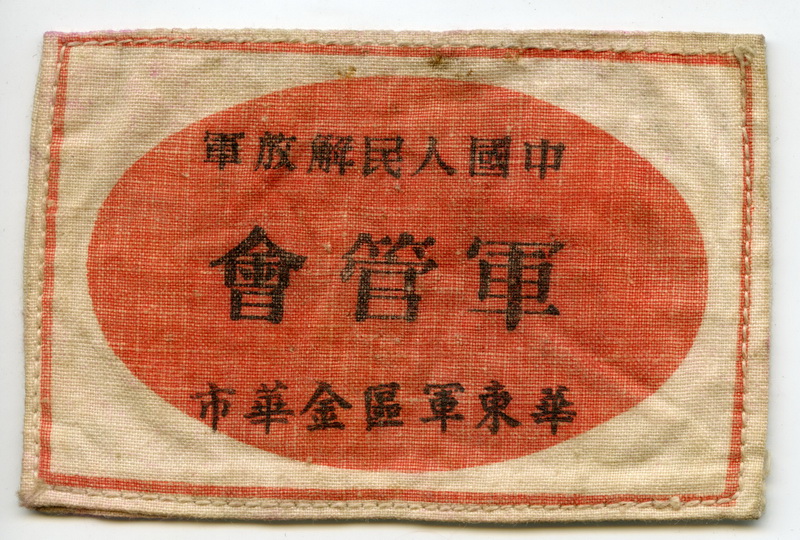 中國人民解放軍
軍管會
華東軍區金華市